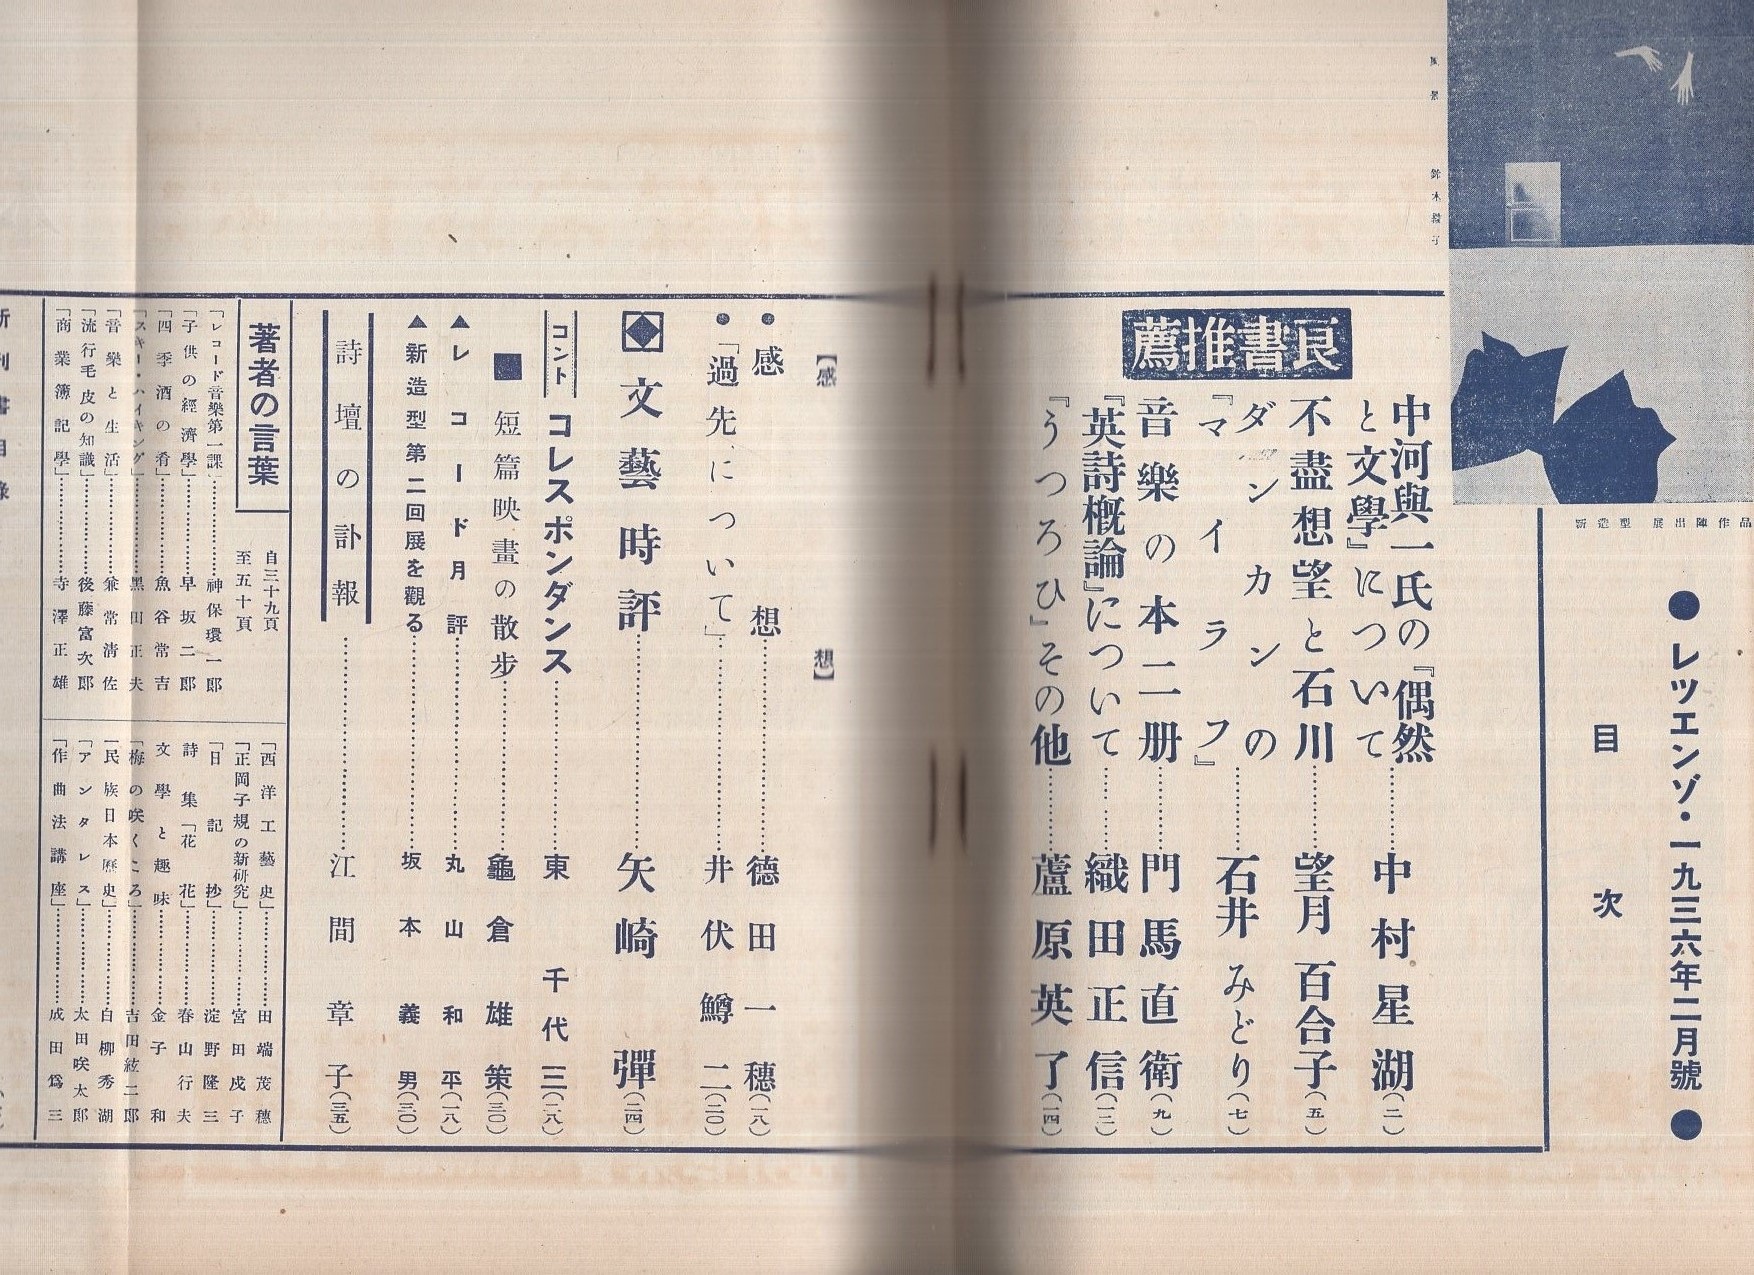 ●レツエンゾ・一九三六年二月號●
目次
風景
鈴木綾子
新造型展出陣作品
良書推薦
中河與一氏の『偶然
と文學』について………中村星湖(二)
不盡想望と石川………望月百合子(五)
ダンカンの
『マイラフ』………石井みどり(七)
音樂の本二册………門馬直衛(九)
『英詩概論』について………織田正信(一二)
『うつろひ』その他………蘆原英了(一四)
【感想】
●感想………德田一穗(一八)
●「過先」について………井伏鱒二(二〇)
文藝時評………矢崎彈(二四)
コント
コレスポンダンス………東千代三(二八)
■短篇映畫の散步………龜倉雄策(三〇)
▲レコード月評………丸山和平(一八)
▲新造型第二回展を觀る………坂本義男(三〇)
詩壇の訃報………江間章子(三五)
著者の言葉
自三十九頁
至五十頁
「レコード音樂第一課」………神保璟一郎
「子供の經濟學」………早坂二郎
「四季酒の肴」………魚谷常吉
「スキー・ハイキング」………黑田正夫
「音樂と生活」………兼常淸佐
「流行毛皮の知識」………後藤富次郎
「商業簿記學」………寺澤正雄
「西洋工藝史」………田端茂穗
「正岡子規の新研究」………宮田戍子
「日記抄」………淀野隆三
詩集「花花」………春山行夫
文學と趣味………金子和
「梅の咲くころ」………吉田絃二郎
「民族日本歷史」………白柳秀湖
「アンタレス」………太田咲太郎
「作曲法講座」………成田爲三
新刊書目錄